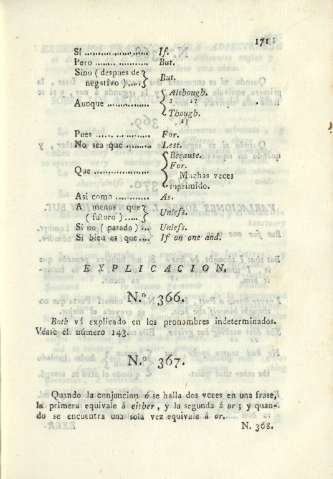 171
Si ............... If.
Pero ............... But.
Sino ( despues de
negativo ).... But.
Aunque ............... Although.
Though.
Pues ............... For.
No sea que ......... Lest.
Que ............... Because.
For.
Muchas veces
suprimido.
Asi como ............ As.
A menos que
( futuro ) ..... Unless.
Si no ( pasado ) ... Unless.
Si bien es que .... If on one and.
EXPLICACION.
N.º 366.
Both vá explicado en los pronombres indeterminados.
Véase el número 143.
N.º 367.
Quando la conjuncion ó se halla dos veces en una frase,
la primera equivale á either, y la segunda á or; y quan-
do se encuentra una sola vez equivale á or.
N. 368.